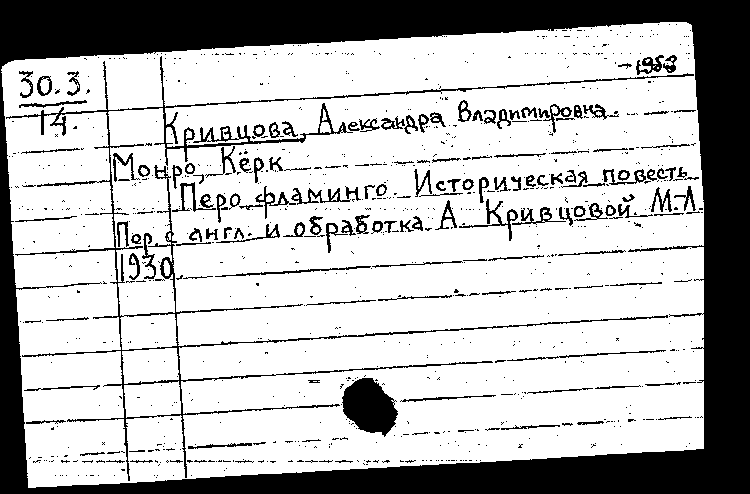 30.3.
14.
– 1958
Кривцова, Александра Владимировна.
Монро, Кёрк
Перо фламинго. Историческая повесть
Пер. с англ. и обработка А. Кривцовой. М.-Л.
1930.